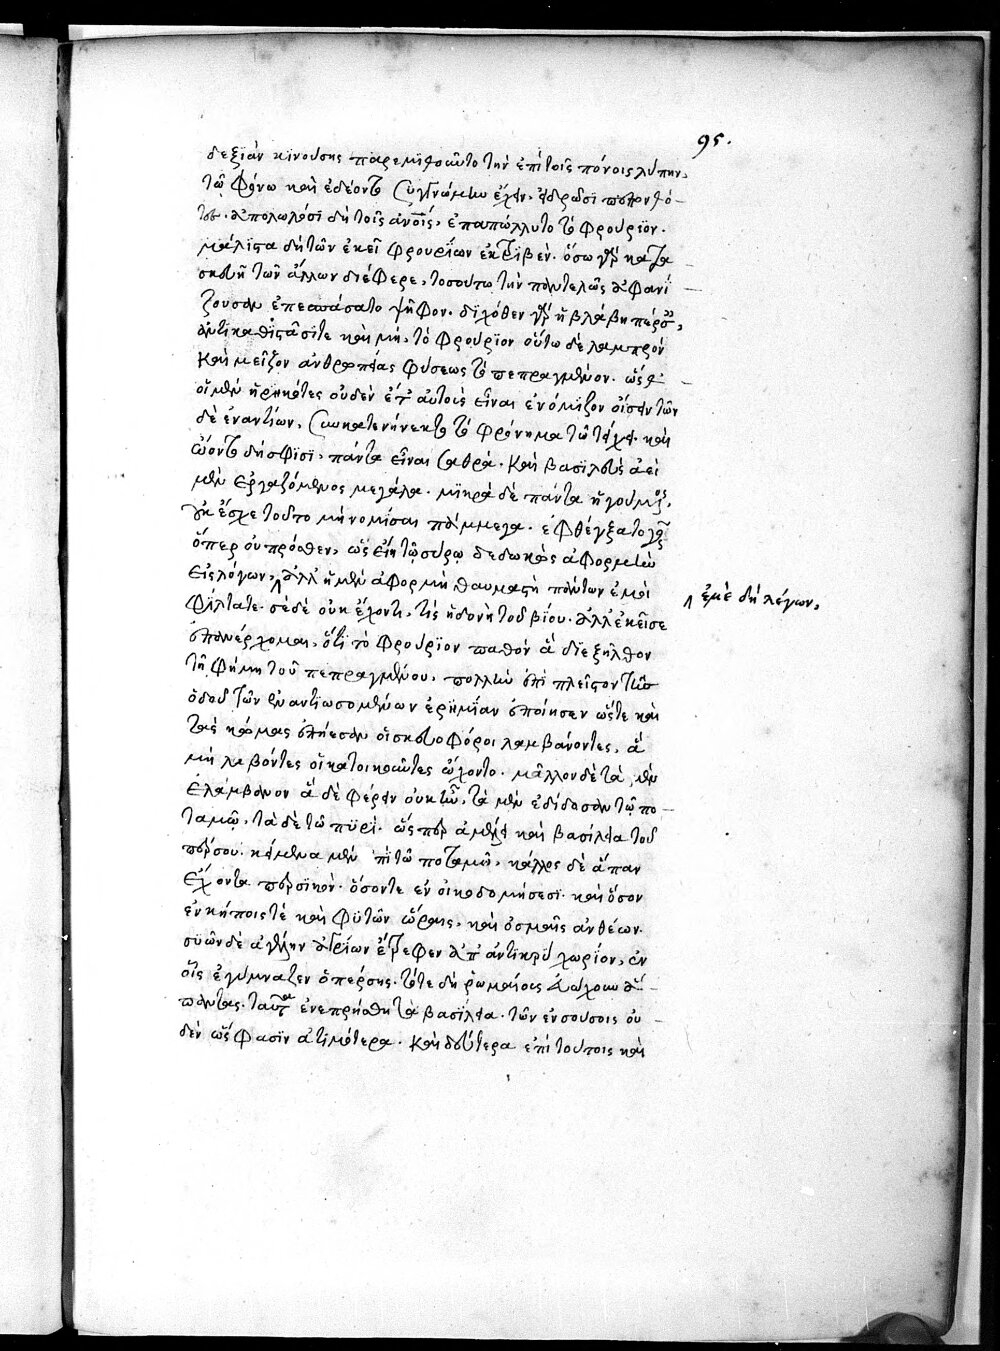 95.
δεξιὰν κινούσης παρεμυθοῦντο τὴν ἐπὶ τοῖς πόνοις λύπην,
τῷ φόνῳ καὶ ἐδέοντο συγγνώμην ἔχειν, ἱδρῶσι
ἀπολωλόσι δὴ τοῖς ἀνοις, ἐπαπώλλυτο τὸ φρούριον.
μάλιστα δὴ τῶν ἐκεῖ φρουρίων ἐκτρῖβεν. ὅσω γὰρ κατα
σκευῆ τῶν ἄλλων διέφερε, τοσούτω τὴν παντελῶς ἀφανί
ζουσαν ἐπεσπάσατο ψῆφον. διχόθεν γὰρ ἡ βλάβη πέρσου,
ἀντικαθιστᾶσί τε καὶ μὴ, τὸ φρούριον οὕτω δὲ λαμπρὸν
καὶ μεῖζον ἀνθρωπείας φύσεως τὸ πεπραγμένον. ὥστε
οἱ μὲν ἠρηκότες οὐδὲν ἔτι αὐτοῖς εἶναι ἐνόμιζον οἴσειν τῶν
δὲ ἐναντίων, συγκατενήνεκτο τὸ φρόνημα τῷ τείχει. καὶ
ὤοντο δὴ σφίσι, πάντα εἶναι σαθρά. καὶ βασιλεὺς ἀεὶ
μὲν ἐργαζόμενος μεγάλα. μικρὰ δὲ πάντα ἡγούμενος,
οὐκ ἔσχε τοῦτο μὴ νομίσαι παμμέγα. ἐφθέγξατο γὰρ
ὅπερ οὐ πρόσθεν, ὡς εἴη τῷ σύρῳ δεδωκὼς ἀφορμὴν
εἰς λόγων, ἀλλ' ἡ μὲν ἀφορμὴ θαυμαστὴ πάντων ἐμοὶ
ἐμὲ δὴ λέγων,
φίλτατε. σὲ δὲ οὐκ ἔχοντι, τίς ἡδονὴ τοῦ βίου. ἀλλ' ἐκεῖσε
ἐπανέρχομαι, ὅτι τὸ φρούριον παθὸν ἃ διεξῆλθον
τῇ φήμῃ τοῦ πεπραγμένου, πολλὴν ἐπὶ πλεῖστον τῆς
ὁδοῦ τῶν ἐναντιωσομένων ἐρημίαν ἐποίησεν ὥστε καὶ
τὰς κώμας ἐπῄεσαν οἱ σκευοφόροι λαμβάνοντες, ἃ
μὴ λαβόντες οἱ κατοικοῦντες ᾤχοντο. μᾶλλον δὲ τὰ μὲν
ἐλάμβανον ἃ δὲ φέρειν οὐκ ἦν, τὰ μὲν ἐδίδοσαν τῷ πο
ταμῷ, τὰ δὲ τῷ πυρί. ὥσπερ ἀμέλει καὶ βασίλεια τοῦ
πέρσου. κείμενα μὲν ἐπὶ τῷ ποταμῷ, κάλλος δὲ ἅπαν
ἔχοντα περσικόν. ὅσον τε ἐν οἰκοδομήσεσι. καὶ ὅσον
ἐν κήποις τὲ καὶ φυτῶν ὥραις, καὶ ὀσμαῖς ἀνθέων.
συῶν δὲ ἀγέλην ἀγρίων ἔτρεφεν ἀπ' ἀντικρὺ χωρίον, ἐν
οἷς ἐγύμναζεν ὁ πέρσης. τότε δὴ ῥωμαίοις
πάντας. ταύτῃ ἐνεπρήσθη τὰ βασίλεια. τῶν ἐν σούσοις οὐ
δὲν ὥς φασὶν ἀτιμότερα. καὶ δεύτερα ἐπὶ τούτοις καὶ